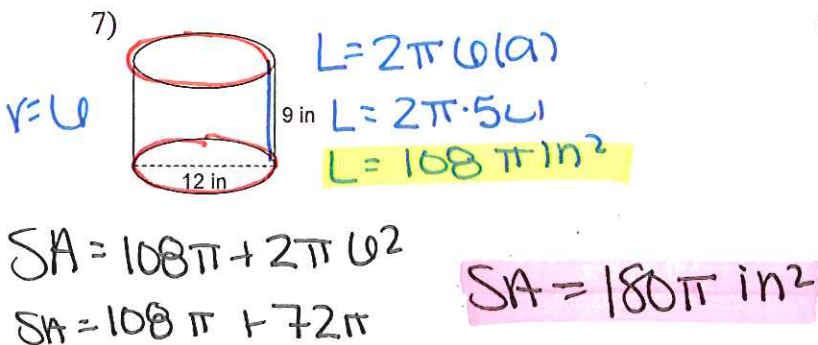 7)
r=6
9 in
12 in
L=2π6(9)
L=2π·54
L=108π in²
SA=108π+2π6²
SA=108π+72π
SA=180π in²